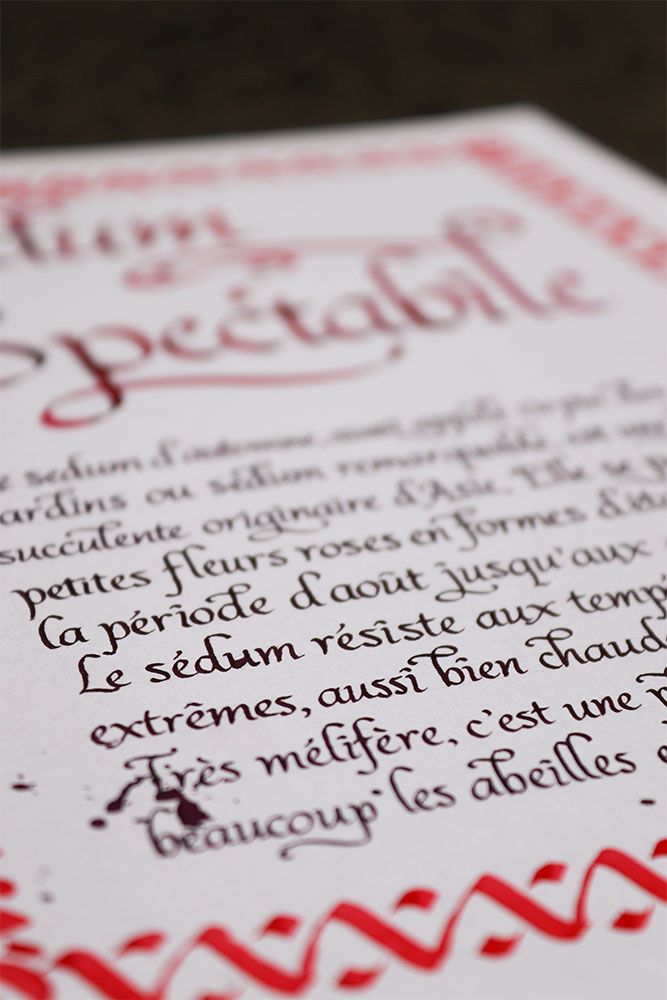 Spectabile
sédum d'automne, aussi appelé
jardins ou sédum remarquable, est
succulente originaire d'Asie. Elle se
petites fleurs roses en formes d'
la période d'août jusqu'aux
Le sédum résiste aux
extrêmes, aussi bien
Très mélifère, c'est une
beaucoup les abeilles